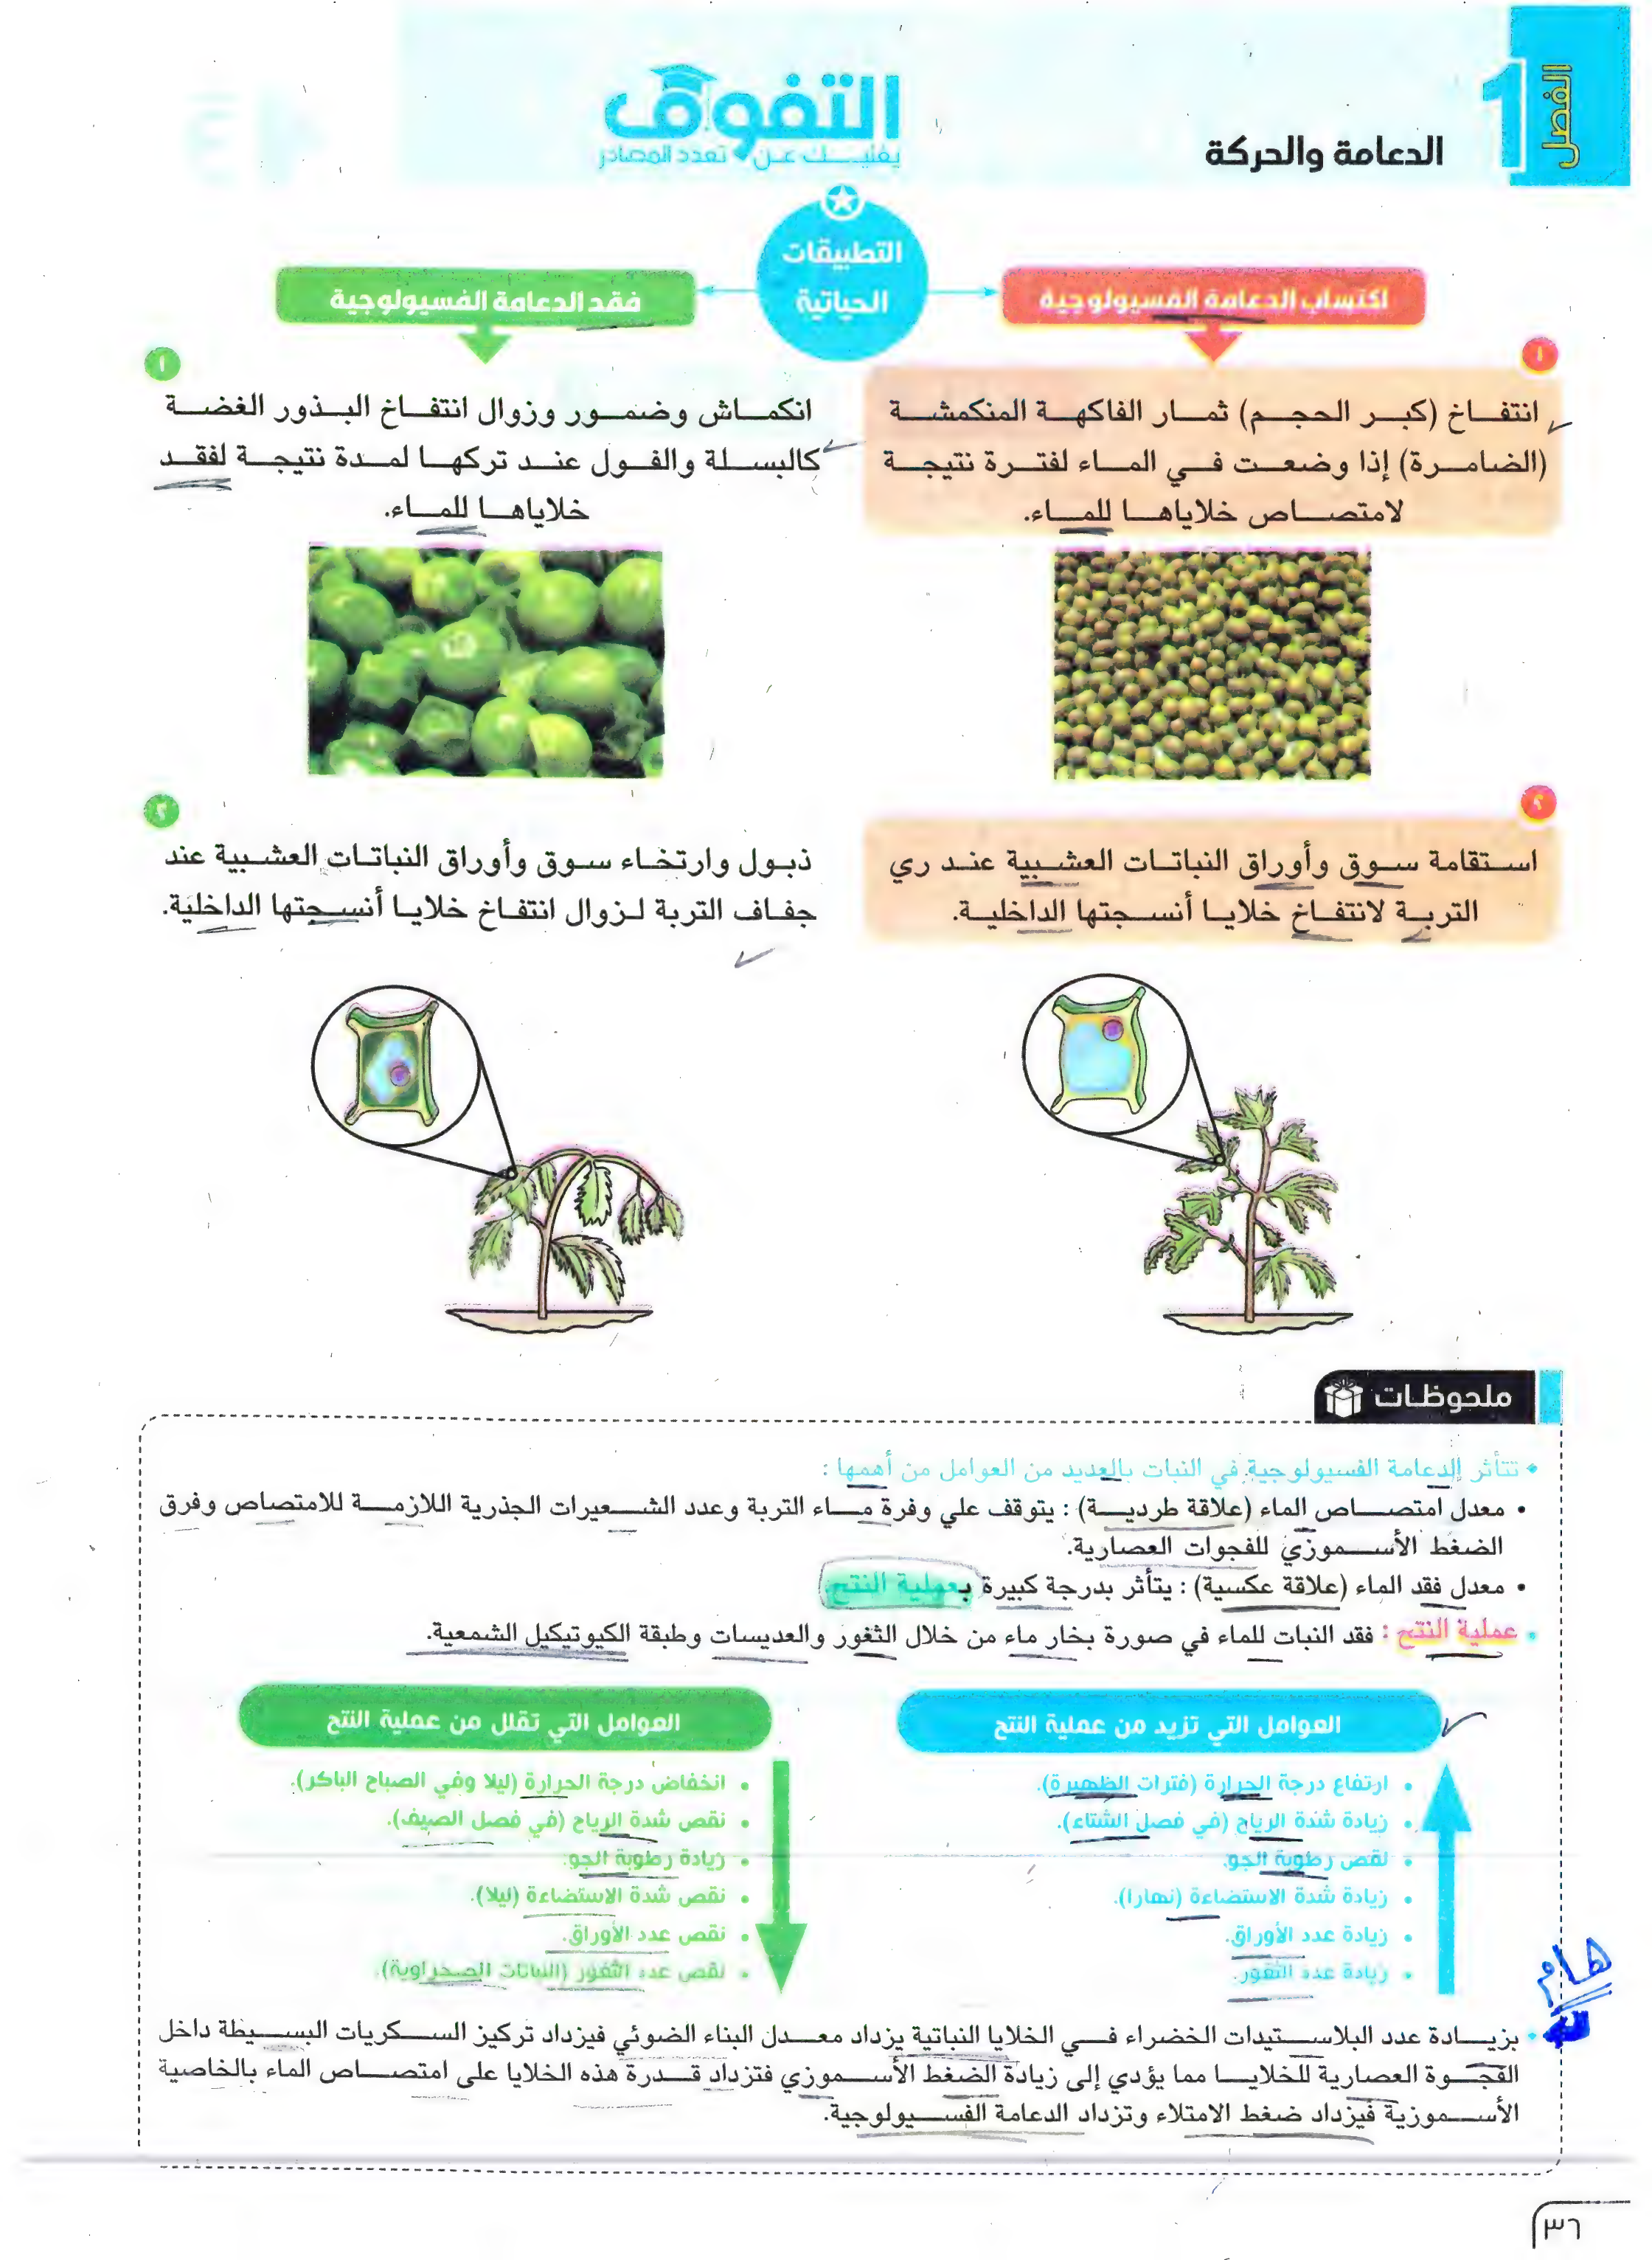 الفصل
1
الدعامة والحركة
التفوق
يغنيك عن تعدد المصادر
التطبيقات
الحياتية
اكتساب الدعامة الفسيولوجية
١
انتفاخ (كبر الحجم) ثمار الفاكهة المنكمشة
(الضامرة) إذا وضعت في الماء لفترة نتيجة
لامتصاص خلاياها للماء.
٢
استقامة سوق وأوراق النباتات العشبية عند ري
التربة لانتفاخ خلايا أنسجتها الداخلية.
فقد الدعامة الفسيولوجية
١
انكماش وضمور وزوال انتفاخ البذور الغضة
كالبسلة والفول عند تركها لمدة نتيجة لفقد
خلاياها للماء.
٢
ذبول وارتخاء سوق وأوراق النباتات العشبية عند
جفاف التربة لزوال انتفاخ خلايا أنسجتها الداخلية.
ملحوظات
تتأثر الدعامة الفسيولوجية في النبات بالعديد من العوامل من أهمها :
• معدل امتصاص الماء (علاقة طردية) : يتوقف علي وفرة ماء التربة وعدد الشعيرات الجذرية اللازمة للامتصاص وفرق
الضغط الأسموزي للفجوات العصارية.
• معدل فقد الماء (علاقة عكسية) : يتأثر بدرجة كبيرة بعملية النتح
عملية النتح : فقد النبات للماء في صورة بخار ماء من خلال الثغور والعديسات وطبقة الكيوتيكيل الشمعية.
العوامل التي تزيد من عملية النتح
• ارتفاع درجة الحرارة (فترات الظهيرة).
• زيادة شدة الرياح (في فصل الشتاء).
• نقص رطوبة الجو.
• زيادة شدة الاستضاءة (نهارا).
• زيادة عدد الأوراق.
• زيادة عدد الثغور.
العوامل التي تقلل من عملية النتح
• انخفاض درجة الحرارة (ليلا وفي الصباح الباكر).
• نقص شدة الرياح (في فصل الصيف).
• زيادة رطوبة الجو.
• نقص شدة الاستضاءة (ليلا).
• نقص عدد الأوراق.
• نقص عدد الثغور (النباتات الصحراوية).
هام
بزيادة عدد البلاستيدات الخضراء في الخلايا النباتية يزداد معدل البناء الضوئي فيزداد تركيز السكريات البسيطة داخل
الفجوة العصارية للخلايا مما يؤدي إلى زيادة الضغط الأسموزي فتزداد قدرة هذه الخلايا على امتصاص الماء بالخاصية
الأسموزية فيزداد ضغط الامتلاء وتزداد الدعامة الفسيولوجية.
٣٦